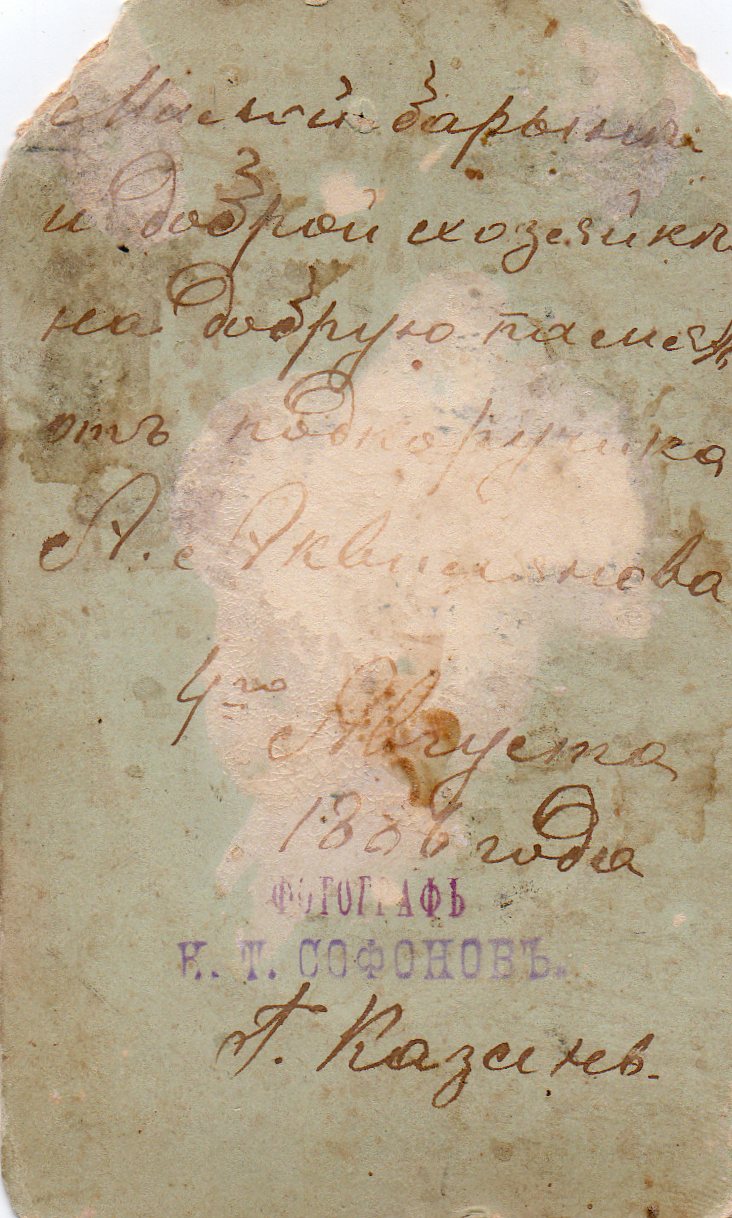 Милой барынѣ
и доброй хозяйкѣ
на добрую память
отъ подпоручика
А.
4го Августа
1886 года
ФОТОГРАФЪ
Т. СОФОНОВЪ.
Г. Казань.